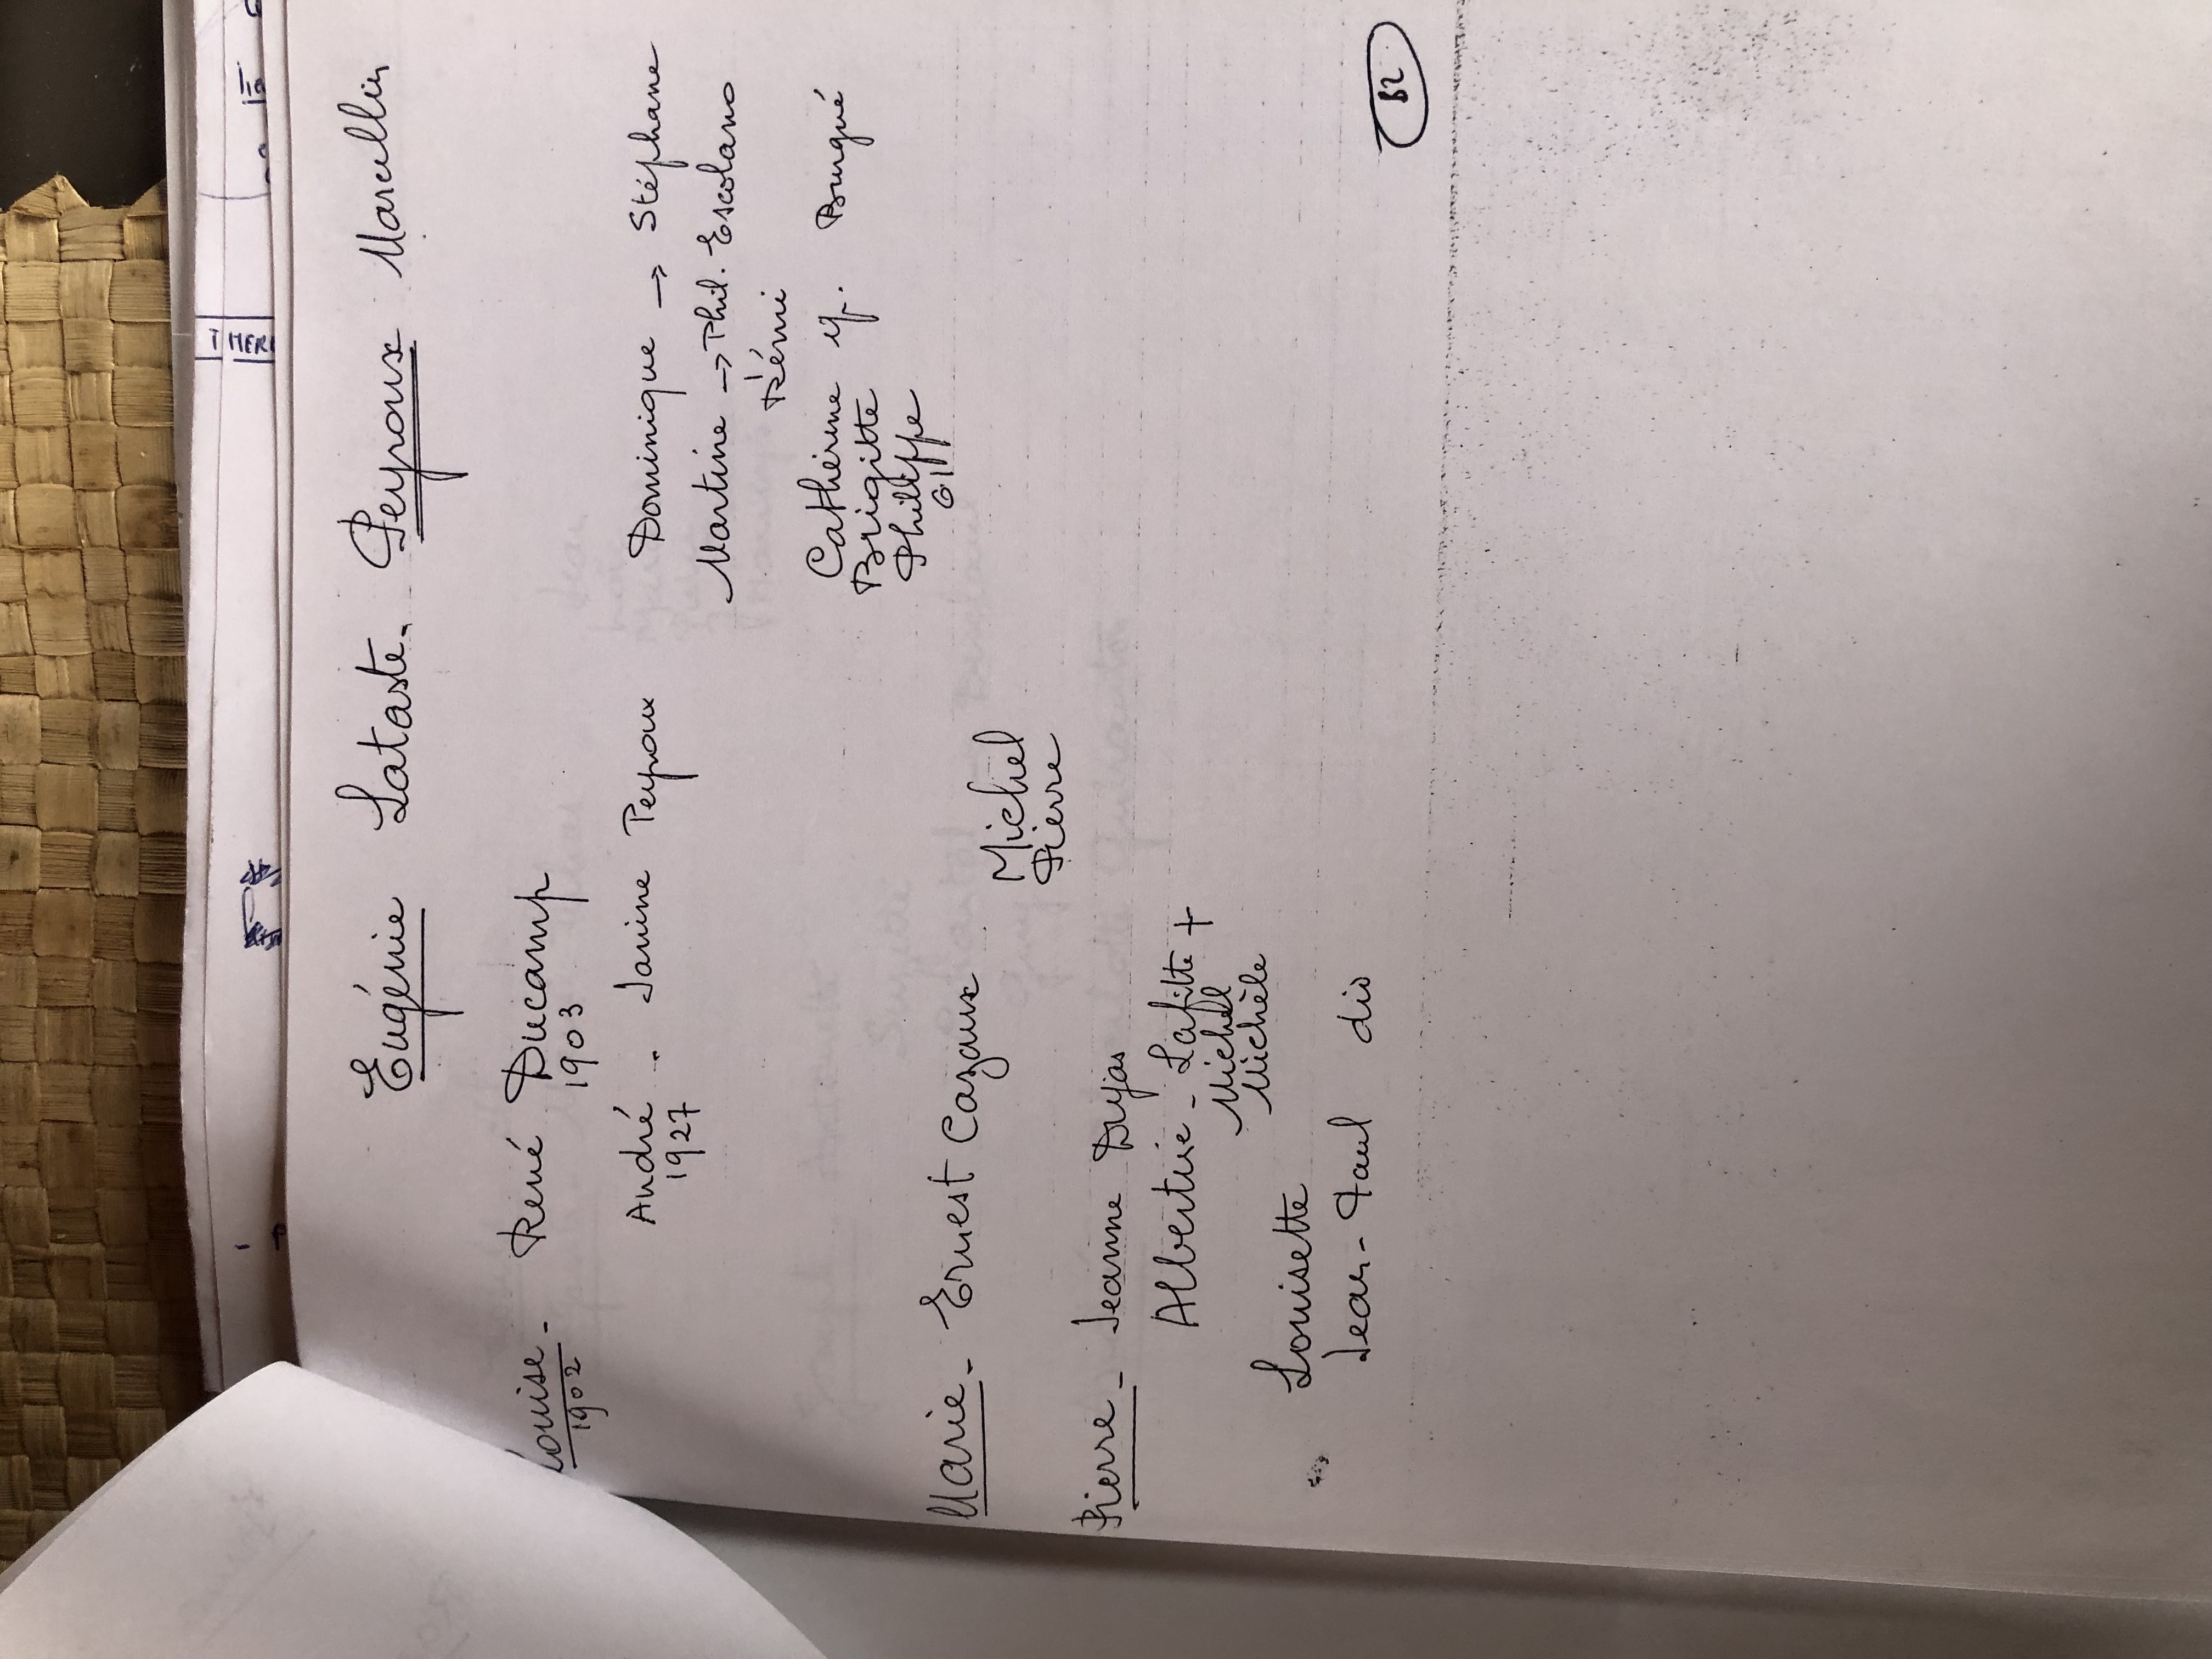 Eugénie Lataste. Peyroux Marcellin
Louise - René Ducamp
1902 1903
André - Janine Peyroux Dominique → Stéphane
1927
Martine → Phil. Escolano
Rémi
Catherine ép. Bougué
Brigitte
Philippe
Marie - Ernest Cazaux
Michel
Pierre
Pierre - Jeanne Dujas
Albertine - Lafitte +
Michel
Michèle
Louisette
Jean-Paul div
B2
MERE